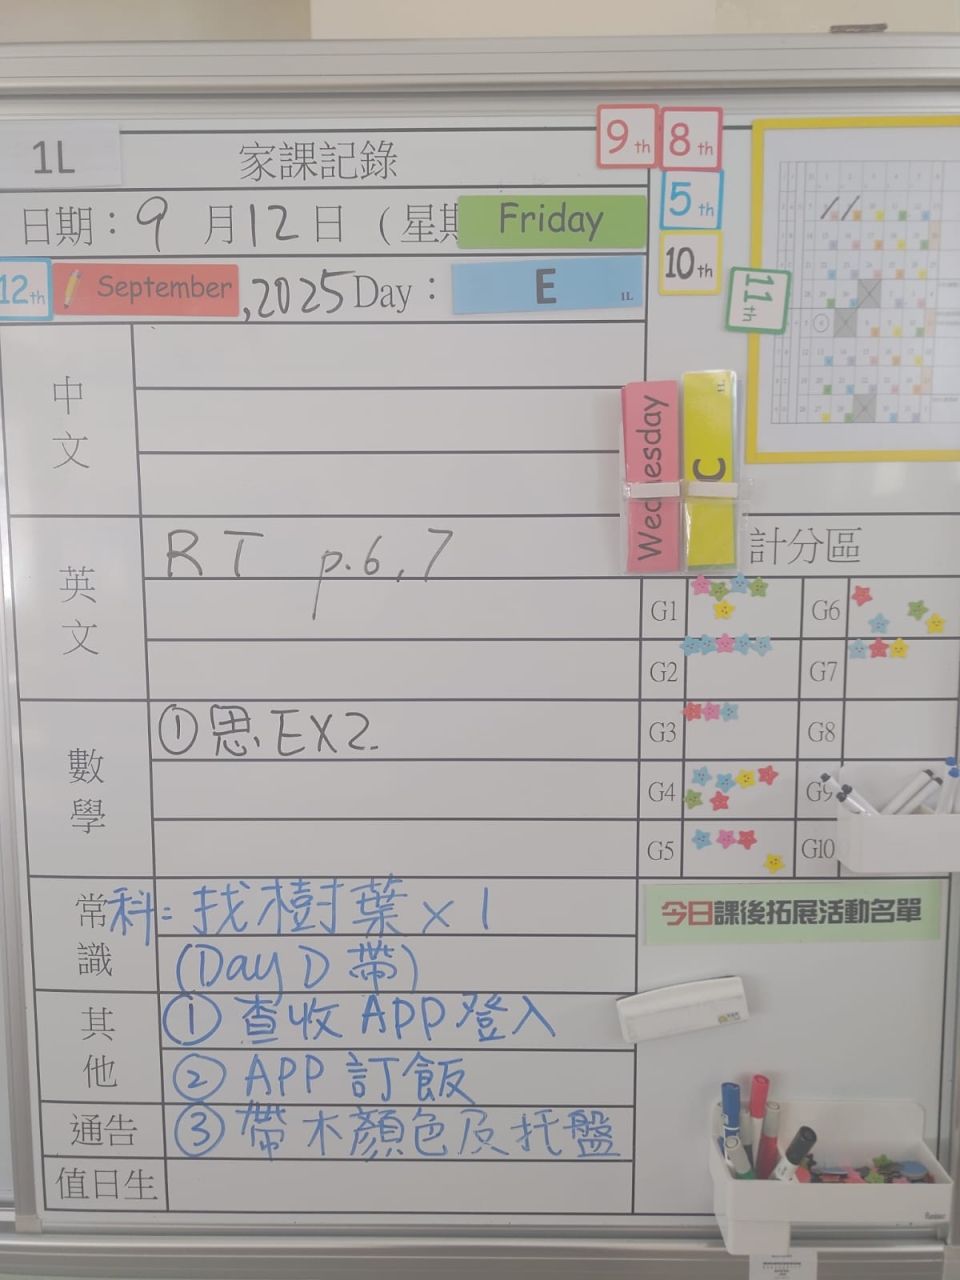 1L
家課記錄
9th 8th
日期：9月12日（星期 Friday
5th
12th September, 2025 Day： E 1L
10th
11th
中文
Wednesday
C 1L
英文
RT p.6,7
計分區
G1 G6
G2 G7
數學
①思 EX2.
G3 G8
G4 G9
G5 G10
常識
科：找樹葉×1
(Day D 帶)
今日課後拓展活動名單
其他
①查收 APP 登入
②APP 訂飯
通告
③帶木顏色及托盤
值日生